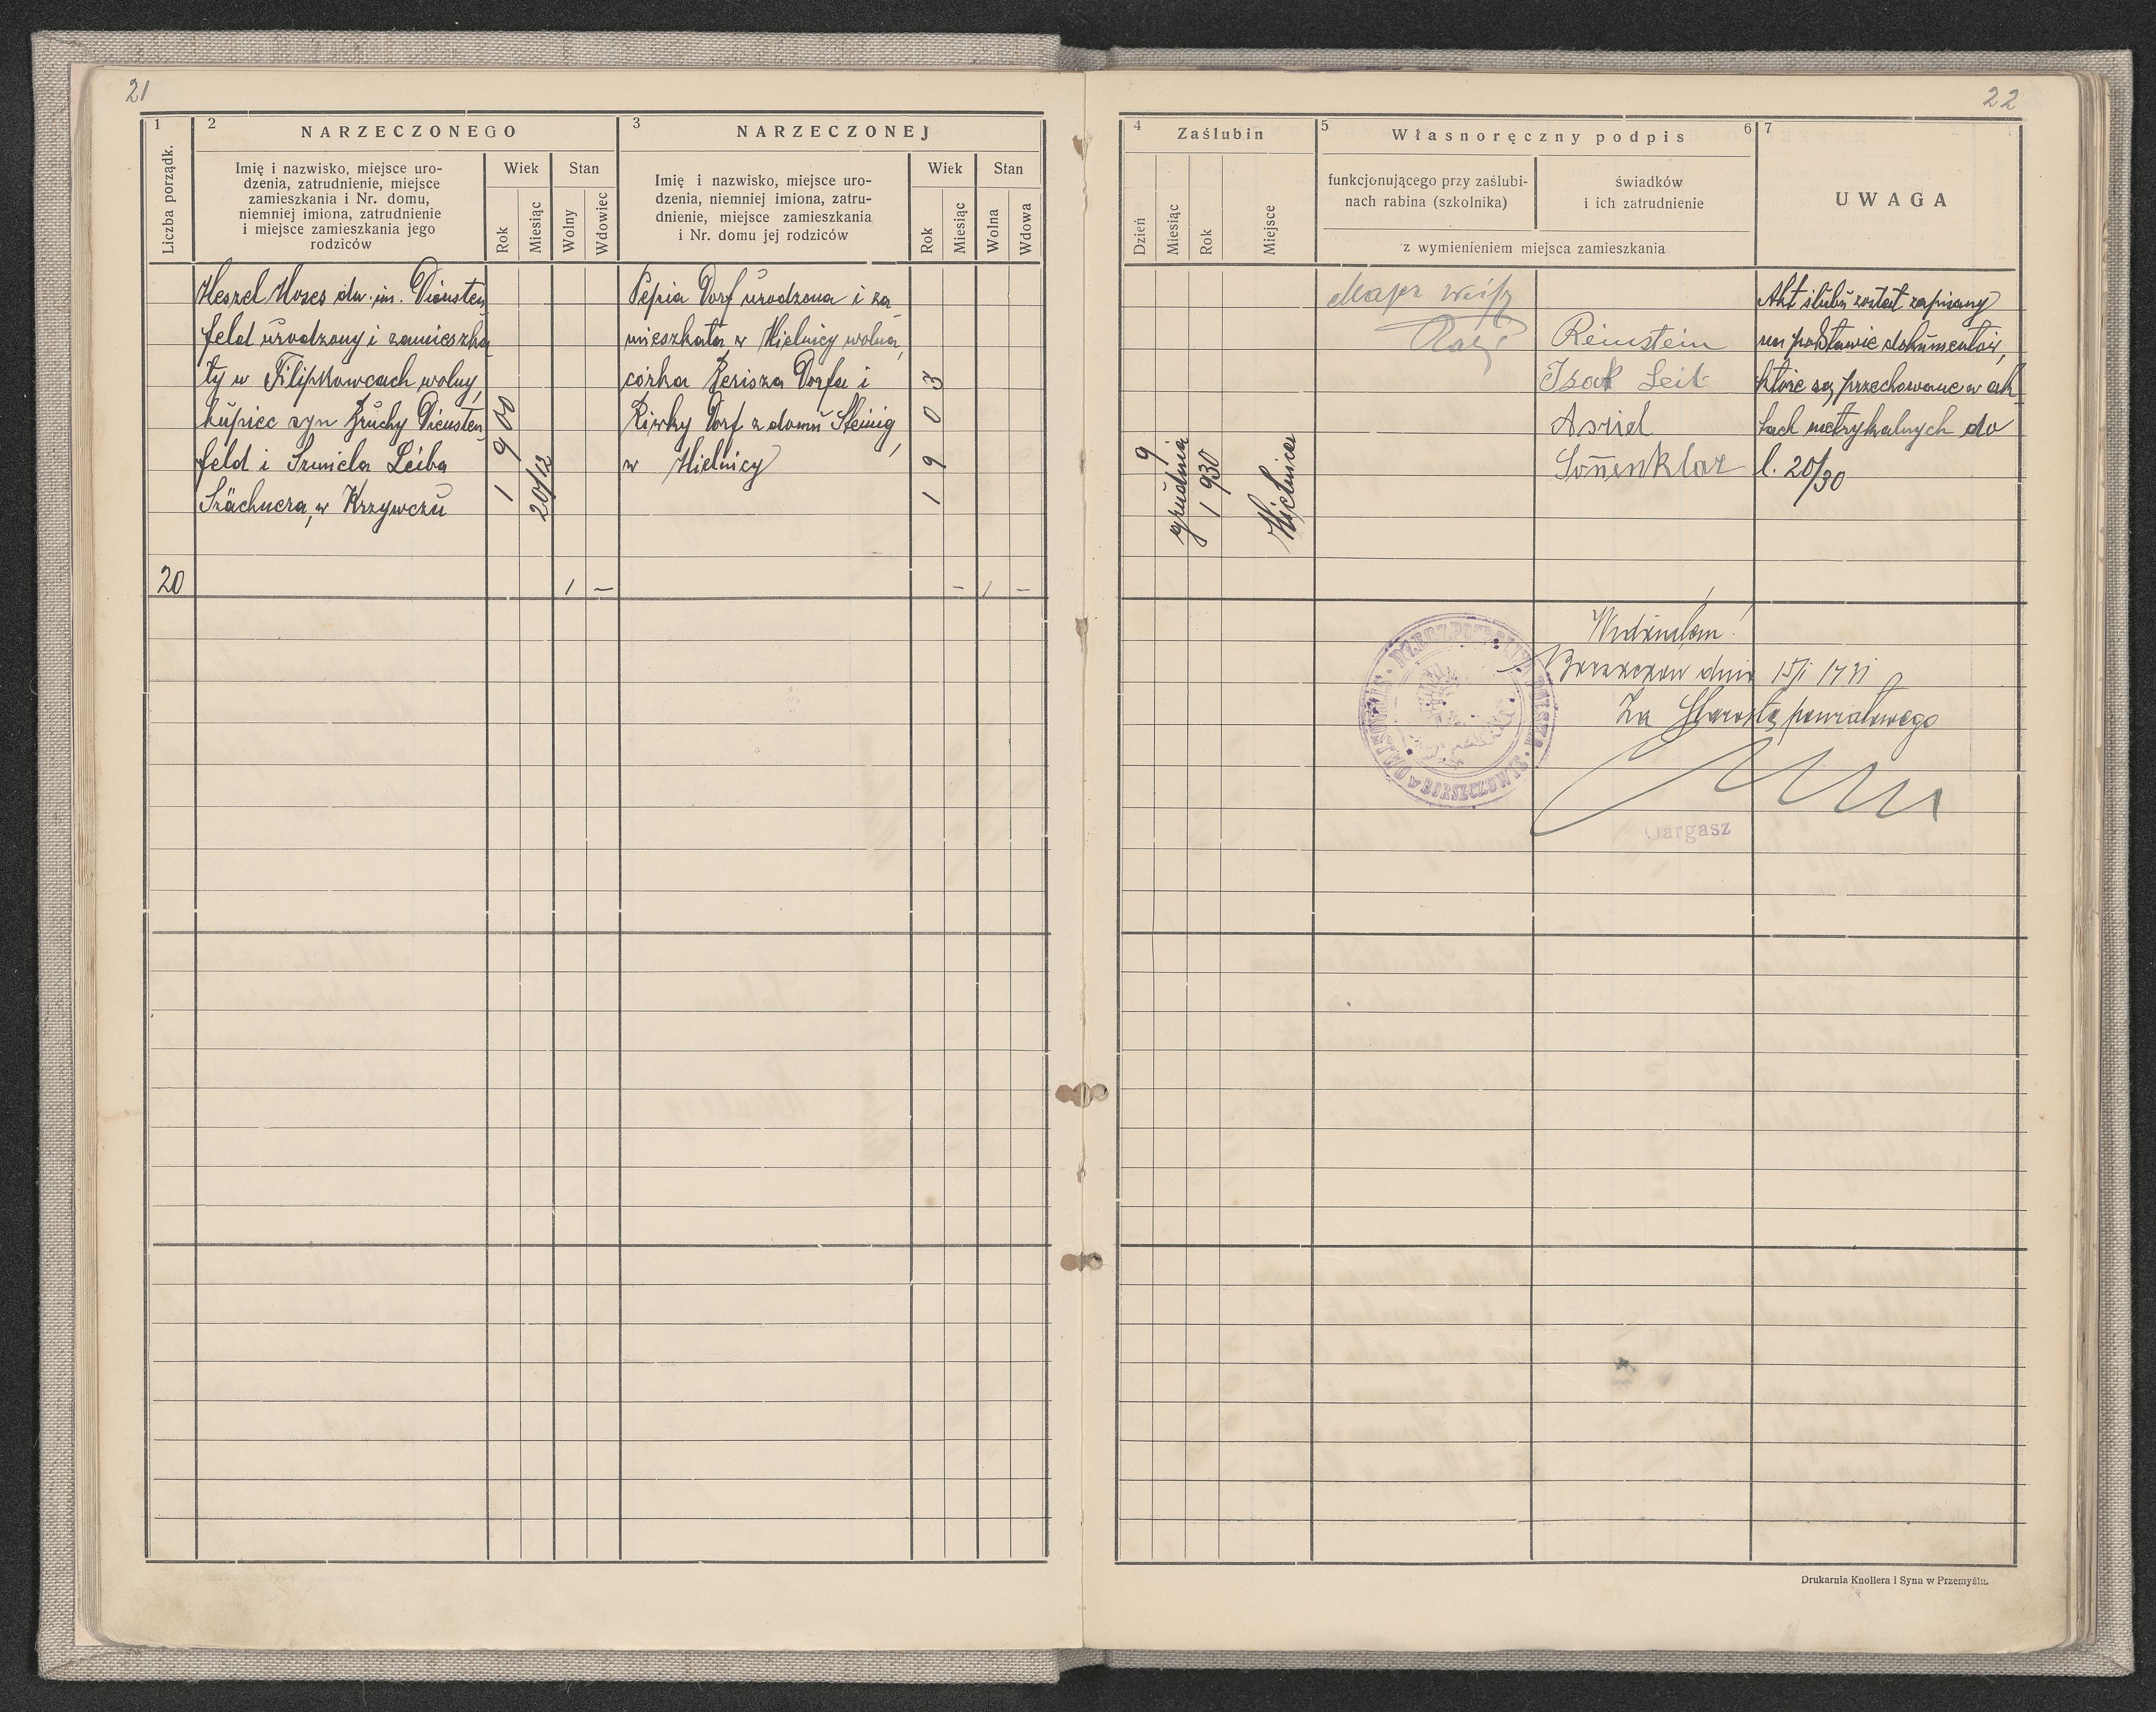 21
1
2
NARZECZONEGO
3
NARZECZONEJ
Liczba porządk.
Imię i nazwisko, miejsce uro-
dzenia, zatrudnienie, miejsce
zamieszkania i Nr. domu,
niemniej imiona, zatrudnienie
i miejsce zamieszkania jego
rodziców
Wiek
Stan
Rok
Miesiąc
Wolny
Wdowiec
Imię i nazwisko, miejsce uro-
dzenia, niemniej imiona, zatru-
dnienie, miejsce zamieszkania
i Nr. domu jej rodziców
Wiek
Stan
Rok
Miesiąc
Wolna
Wdowa
Heszel Moses dw. im. Diensten
feld urodzony i zamieszka
ły w Filipkowcach wolny,
kupiec syn Bruchy Diensten
feld i Szmiela Leiba
Szächnera, w Krzywczu
1900
20/12
20
1 –
Pepia Dorf urodzona i za
mieszkała w Mielnicy wolna,
córka Berisza Dorfa i
Riwky Dorf z domu Steinig,
w Mielnicy
1903
– 1 –
22
4
Zaślubin
5
Własnoręczny podpis
6
7
Dzień
Miesiąc
Rok
Miejsce
funkcjonującego przy zaślubi-
nach rabina (szkolnika)
świadków
i ich zatrudnienie
z wymienieniem miejsca zamieszkania
UWAGA
9
grudnia
1930
Mielnica
Majer Weiss
Reinstein
Isak Leib
Asriel
Sonnenklar
Akt ślubu został zapisany
na podstawie dokumentów,
które są przechowane w ak
tach metrykalnych do
l. 20/30
Widziałem!
Borszczów dnia
Za Starostę powiatowego
RZECZPOSPOLITA POLSKA
w BORSZCZOWIE
Gargasz
Drukarnia Knollera i Syna w Przemyślu.